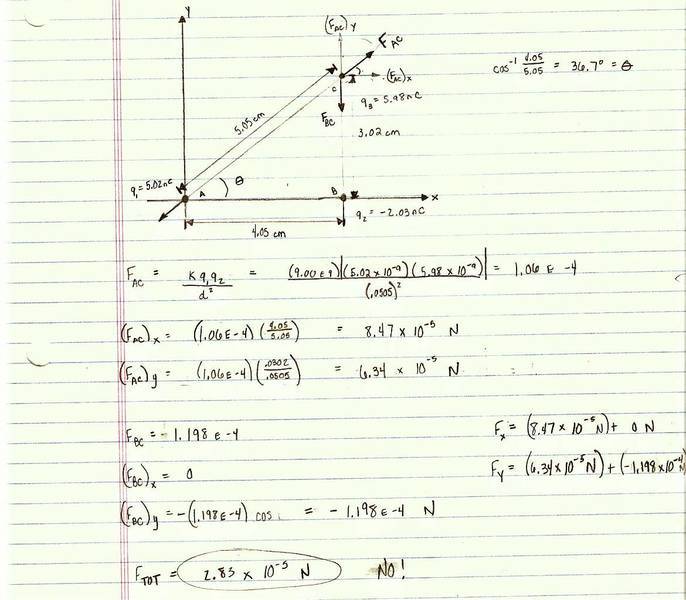 y
(F_AC)y
F_AC
cos⁻¹ 4.05/5.05 = 36.7° = θ
(F_AC)x
C
q₃ = 5.98nC
F_BC
5.05 cm
3.02 cm
q₁ = 5.02nC
A
θ
B
x
q₂ = -2.03nC
4.05 cm
F_AC = K q₁ q₂ / d² = (9.00E9)|(5.02 x 10⁻⁹)(5.98 x 10⁻⁹)| / (.0505)² = 1.06 E -4
(F_AC)x = (1.06E-4)(4.05/5.05) = 8.47 x 10⁻⁵ N
(F_AC)y = (1.06E-4)(.0302/.0505) = 6.34 x 10⁻⁵ N
F_BC = -1.198 E-4
Fx = (8.47 x 10⁻⁵ N) + 0 N
(F_BC)x = 0
Fy = (6.34 x 10⁻⁵ N) + (-1.198 x 10⁻⁴
(F_BC)y = -(1.198E-4) cos = -1.198E-4 N
F_TOT = 2.83 x 10⁻⁵ N NO!